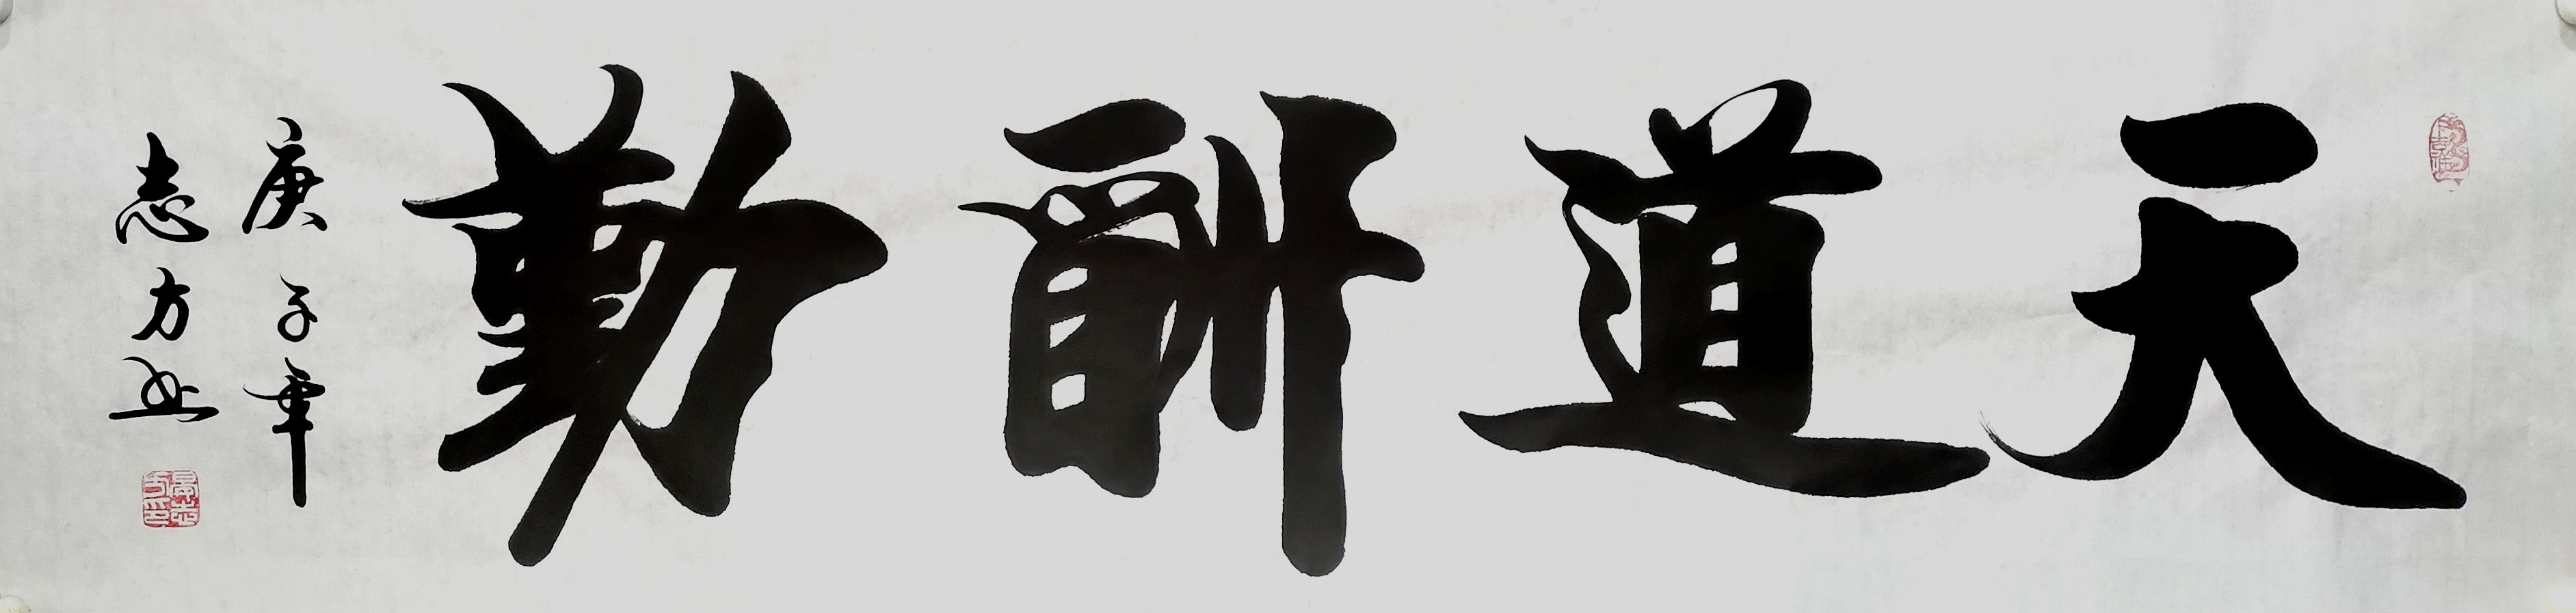 天道酬勤
庚子年
志方书